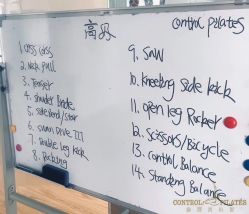 高级
control pilates
1. criss cross
2. Neck pull
3. Teaser
4. shoulder Bridge
5. side bend / star
6. swan Dive III
7. Double leg kick
8. Rocking
9. saw
10. Kneeling side kick
11. open leg Rocker
12. scissors/Bicycle
13. control Balance
14. Standing Balance
CONTROL PILATES